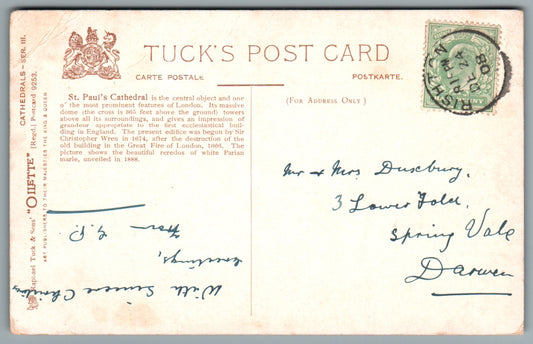 TUCK'S POST CARD
CARTE POSTALE
POSTKARTE.
(FOR ADDRESS ONLY)
St. Paul's Cathedral is the central object and one
of the most prominent features of London. Its massive
dome (the cross is 365 feet above the ground) towers
above all its surroundings, and gives an impression of
grandeur appropriate to the first ecclesiastical build-
ing in England. The present edifice was begun by Sir
Christopher Wren in 1674, after the destruction of the
old building in the Great Fire of London, 1666. The
picture shows the beautiful reredos of white Parian
marle, unveiled in 1888.
CATHEDRALS – SER. III.
Raphael Tuck & Sons' "OILETTE" [Regd.] Postcard 9253.
ART PUBLISHERS TO THEIR MAJESTIES THE KING & QUEEN
RISHTON
DE 24
08
Mr & Mrs Duxbury,
3 Lower Fold,
Spring Vale
Darwen
With Sincere Christmas
Greetings,
from